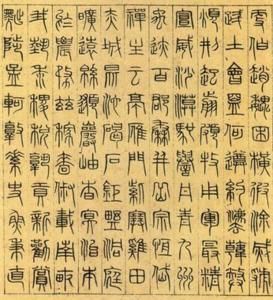 更霸趙魏困橫假途滅虢
踐土會盟何遵約法韓弊
煩刑起翦頗牧用軍最精
宣威沙漠馳譽丹青九州
禹跡百郡秦并嶽宗恆岱
禪主云亭雁門紫塞雞田
赤城昆池碣石鉅野洞庭
曠遠緜邈巖岫杳冥治本
於農務茲稼穡俶載南畝
我藝黍稷稅熟貢新勸賞
黜陟孟軻敦素史魚秉直